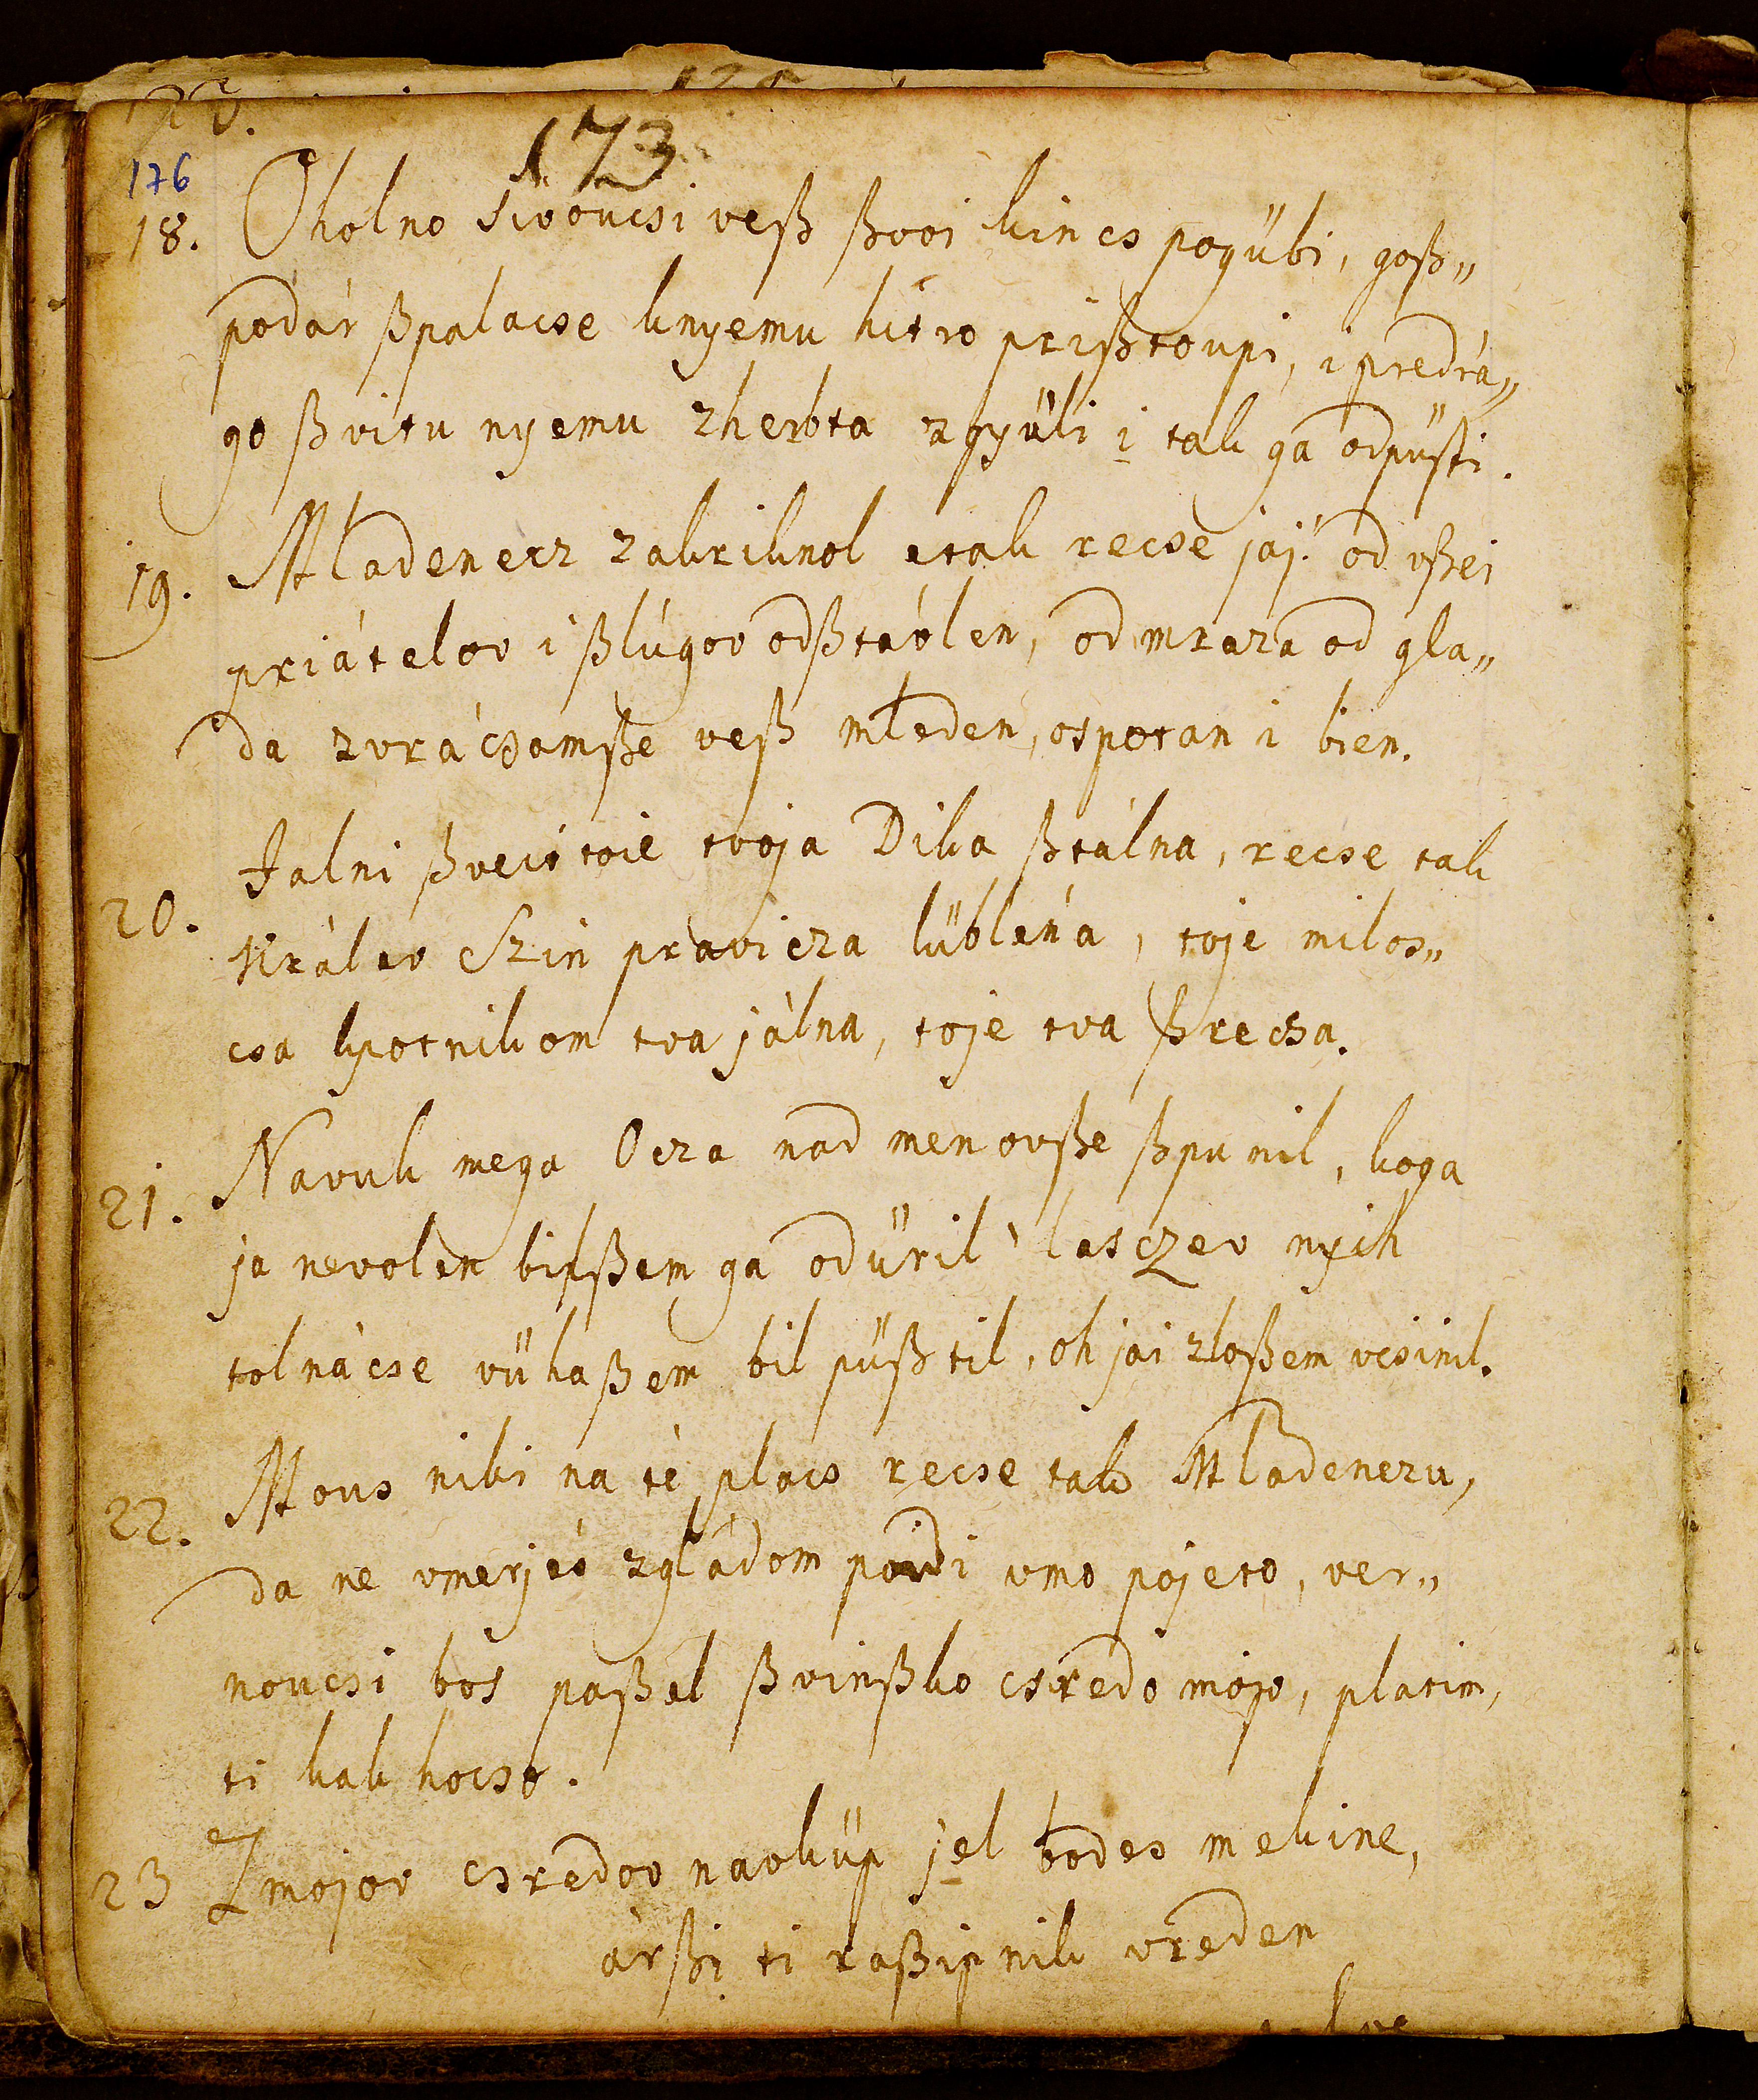 173
176
18. Oholno sivoucsi veß ßvoi kincs pogübi, goß„
podár ßpalacse knyemu hitro prißtoupi, i predrá„
go ßvitu nyemu zherbta zgyüli i tak ga odpüsti.
19. Mladenecz zakriknol itak recse jaj. od vßei
priátelov i ßlúgov odßtávlen, od mraza od gla„
da zvrácsamße veß mleden, ospotan i bien.
20. Jalni ßveit toie tvoja Dika ßtálna, recse tak
Králev Szin pravicza lüblena, toje milos„
csa kpotnikom tva jálna, toje tva ßrecsa.
21. Navuk mega Ocza nad menovße ßpunil, koga
ja nevolen bilßem ga odüril lasczev nyih
tolnácse vühaßem bil püßtil, oh jai zloßem vcsinil.
22. Mous niki na té placs recse tak Mladenczu,
da ne vmerjes zgládom poidi vmo pojeto, ver„
noucsi bos paßel ßvinßko csredo mojo, platim,
ti kak hocso.
23 Zmojov csredov navküp jel bodes mekine,
árßi ti raßipnik vreden